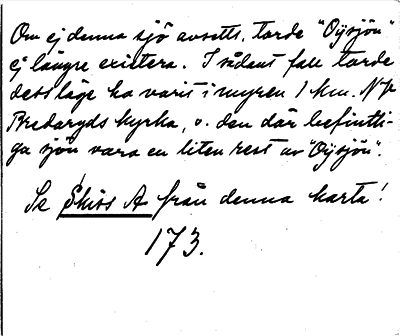 Om ej denna sjö avsetts, torde "Oÿsjön"
ej längre existera. I sådant fall torde
dess läge ha varit i myren 1 km. N p
Bredaryds kyrka, o. den där befintli-
ga sjön vara en liten rest av "Oÿsjön".
Se Skiss A från denna karta!
173.